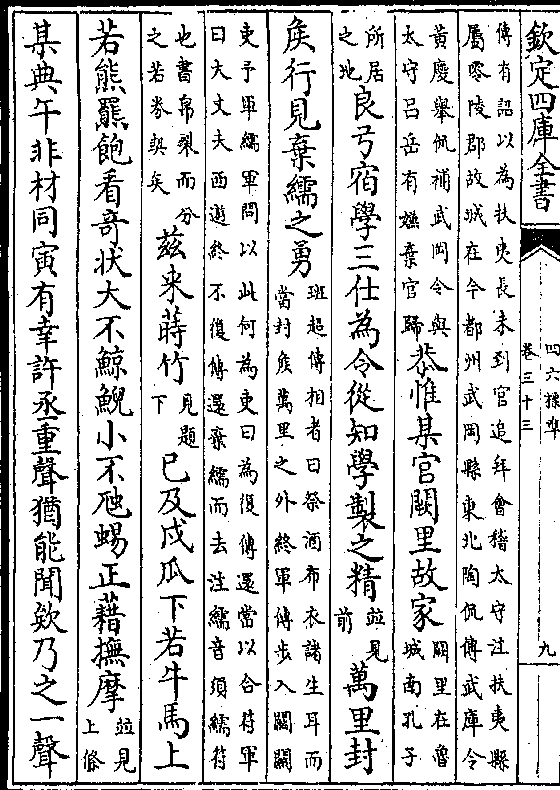 欽定四庫全書
四六標準
卷三十三
九
傳有詔以為扶夷長未到官追拜會稽太守注扶夷縣
屬零陵郡故城在今都州武岡縣東北陶侃傳武庫令
黄慶舉侃補武岡令與
太守吕岳有嫌棄官歸
恭惟某官闕里故家
闕里在魯
城南孔子
所居
之地
良弓宿學三仕為令從知學製之精
並見
前
萬里封
侯行見棄繻之勇
班超傳相者曰祭酒布衣諸生耳而
當封侯萬里之外終軍傳步入關關
吏予軍繻軍問以此何為吏曰為復傳還當以合符軍
曰大丈夫西遊終不復傳還棄繻而去注繻音須繻符
也書帛裂而分
之若券契矣
兹来蒔竹
見題
下
已及戍瓜下若牛馬上
若熊羆飽看奇狀大不鯨鯢小不虺蜴正藉撫摩
並見
上條
某典午非材同寅有幸許丞重聲猶能聞欸乃之一聲